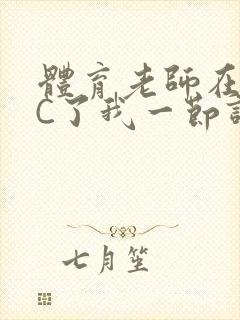 體育老師在
C了我一節
七月笙